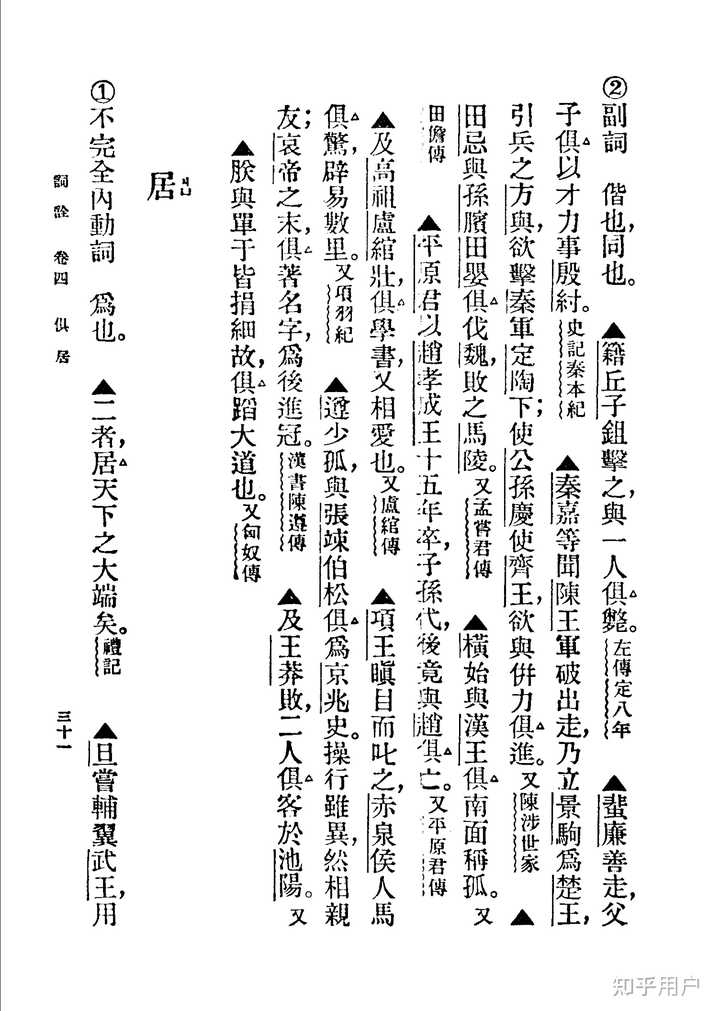 ②副詞　偕也，同也。　▲籍丘子鉏擊之，與一人俱斃。左傳定八年　▲蜚廉善走，父
子俱以才力事殷紂。史記秦本紀　▲秦嘉等聞陳王軍破出走，乃立景駒爲楚王，
引兵之方與，欲擊秦軍定陶下；使公孫慶使齊王，欲與倂力俱進。又陳涉世家　▲
田忌與孫臏田嬰俱伐魏，敗之馬陵。又孟嘗君傳　▲橫始與漢王俱南面稱孤。又
田儋傳　▲平原君以趙孝成王十五年卒，子孫代，後竟與趙俱亡。又平原君傳
▲及高祖盧綰壯，俱學書，又相愛也。又盧綰傳　▲項王瞋目而叱之，赤泉侯人馬
俱驚，辟易數里。又項羽紀　▲遵少孤，與張竦伯松俱爲京兆史。操行雖異，然相親
友；哀帝之末，俱著名字，爲後進冠。漢書陳遵傳　▲及王莽敗，二人俱客於池陽。又
▲朕與單于皆捐細故，俱蹈大道也。又匈奴傳
居 ㄐㄩ
①不完全內動詞　爲也。　▲二者，居天下之大端矣。禮記　▲旦嘗輔翼武王，用
詞詮　卷四　俱居　三十一
知乎用户